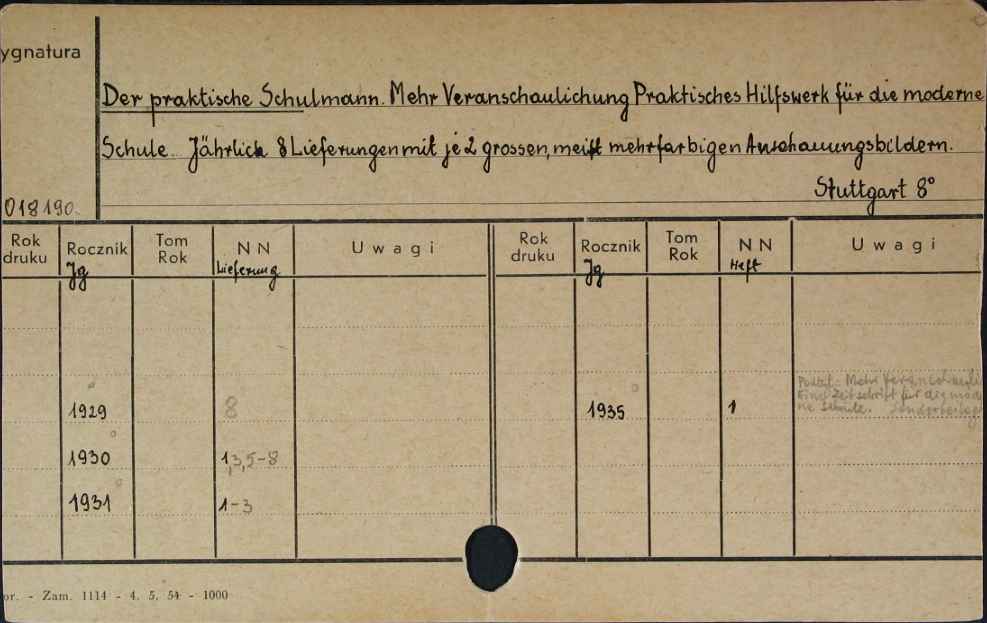 ygnatura
Der praktische Schulmann. Mehr Veranschaulichung Praktisches Hilfswerk für die moderne
Schule. Jährlich 8 Lieferungen mit je 2 grossen, meist mehrfarbigen Anschauungsbildern.
Stuttgart 8°
018190.
Rok druku Rocznik Tom Rok N N U w a g i Rok druku Rocznik Tom Rok N N U w a g i
Jg Lieferung Jg Heft
Podtyt.: Mehr Veranschauli
1929 8 1935 1 Eine Zeitschrift für die mod
ne Schule.
1930 1,3,5-8
1931 1-3
or. - Zam. 1114 - 4. 5. 54 - 1000